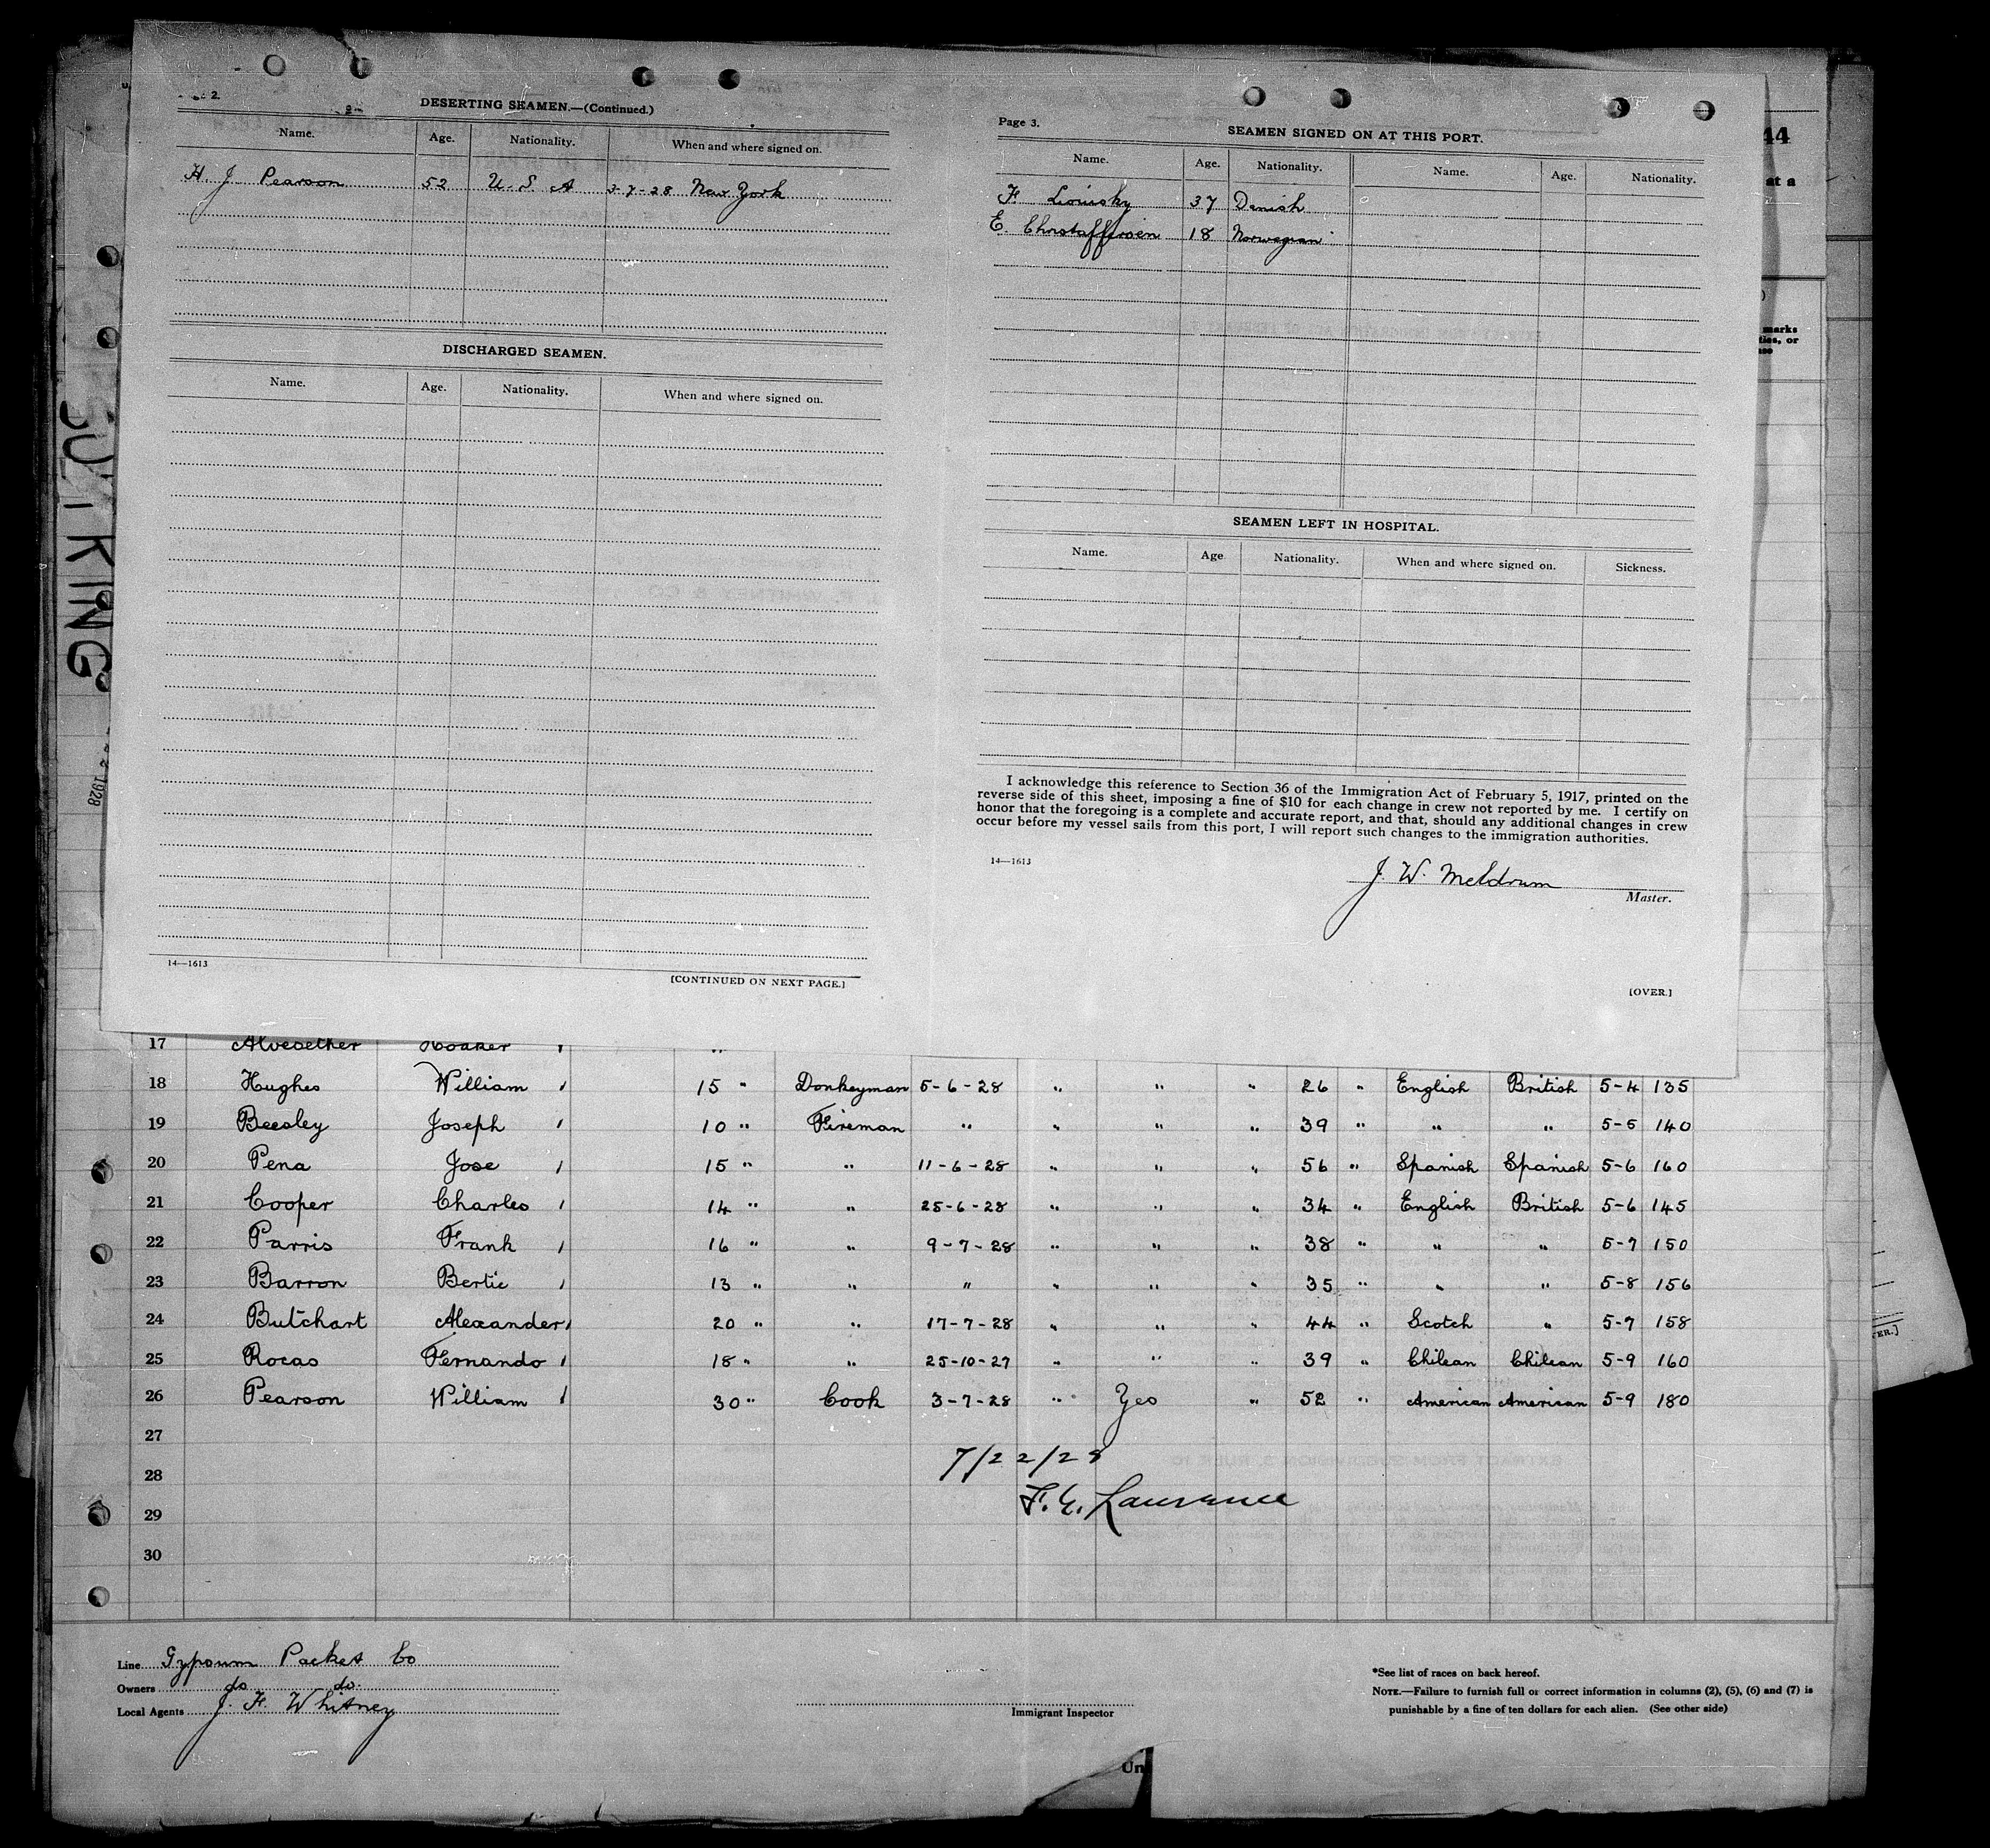 2.
DESERTING SEAMEN.—(Continued.)
Name. Age. Nationality. When and where signed on.
H. J. Pearson 52 U. S. A 3-7-28 New York
DISCHARGED SEAMEN.
Name. Age. Nationality. When and where signed on.
14—1613
[CONTINUED ON NEXT PAGE.]
Page 3.
SEAMEN SIGNED ON AT THIS PORT.
Name. Age. Nationality. Name. Age. Nationality.
F 37 Danish
E. Christaffersen 18 Norwegian
SEAMEN LEFT IN HOSPITAL.
Name. Age Nationality. When and where signed on. Sickness.
I acknowledge this reference to Section 36 of the Immigration Act of February 5, 1917, printed on the
reverse side of this sheet, imposing a fine of $10 for each change in crew not reported by me. I certify on
honor that the foregoing is a complete and accurate report, and that, should any additional changes in crew
occur before my vessel sails from this port, I will report such changes to the immigration authorities.
14—1613
J. W. Meldrum
Master.
[OVER.]
44
at a
marks
ties, or
KING
1928
17
18 Hughes William 15 " Donkeyman 5-6-28 " " " 26 " English British 5-4 135
19 Beesley Joseph 10 " Fireman " " " " 39 " " " 5-5 140
20 Pena Jose 15 " " 11-6-28 " " " 56 " Spanish Spanish 5-6 160
21 Cooper Charles 14 " " 25-6-28 " " " 34 " English British 5-6 145
22 Parris Frank 16 " " 9-7-28 " " " 38 " " " 5-7 150
23 Barron Bertie 13 " " " " " " 35 " " " 5-8 156
24 Butchart Alexander 20 " " 17-7-28 " " " 44 " Scotch " 5-7 158
25 Rocas Fernando 18 " " 25-10-27 " " " 39 " Chilean Chilean 5-9 160
26 Pearson William 30 " Cook 3-7-28 " Yes " 52 " American American 5-9 180
27
7/22/28
28
F. G. Laurence
29
30
Line Gypsum Packet Co
Owners do do.
Local Agents J. F. Whitney
Immigrant Inspector
*See list of races on back hereof.
NOTE.—Failure to furnish full or correct information in columns (2), (5), (6) and (7) is
punishable by a fine of ten dollars for each alien. (See other side)
Un
VER.]